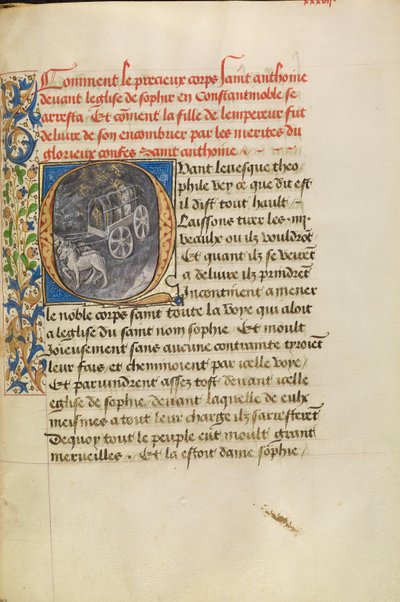 xxxvij
Comment le precieux corps saint anthoine
deuant leglise de sophie en Constantinoble se
arresta Et coment la fille de lempereur fut
deliure de son encombrier par les merites du
glorieux confes saint anthoine
Quant leuesque theo
phile vey ce que dit est
il dist tout hault
Laissons tirer les iiij
veaulx ou ilz vouldrot
Et quant ilz se veiret
a deliure ilz prindret
Incontinent a mener
le noble corps saint toute la voye qui aloit
a leglise du saint nom sophie Et moult
ioieusement sans aucune contrainte tyroiet
leur fais et cheminoient par icelle voye
Et paruindrent assez tost deuant icelle
eglise de sophie deuant laquelle de eulx
meismes a tout leur charge ilz sarresteret
Dequoy tout le peuple eut moult grant
merueilles . Et la estoit dame sophie